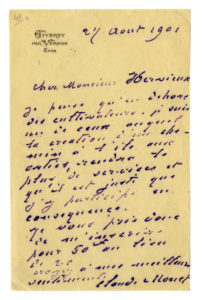 Giverny
par Vernon
Eure
27 Août 1901
cher Monsieur Hervieux
Je pense qu'en dehors
des cultivateurs je suis
un de ceux auquel
la création d'un che-
min à l'île aux
orties, rendra le
plus de services et
qu'il est juste que
j'y participe en
conséquence.
Je vous prie donc
de m'inscrire
pour 50f au lieu
de 20
croyez à mes meilleurs
sentiments Claude Monet